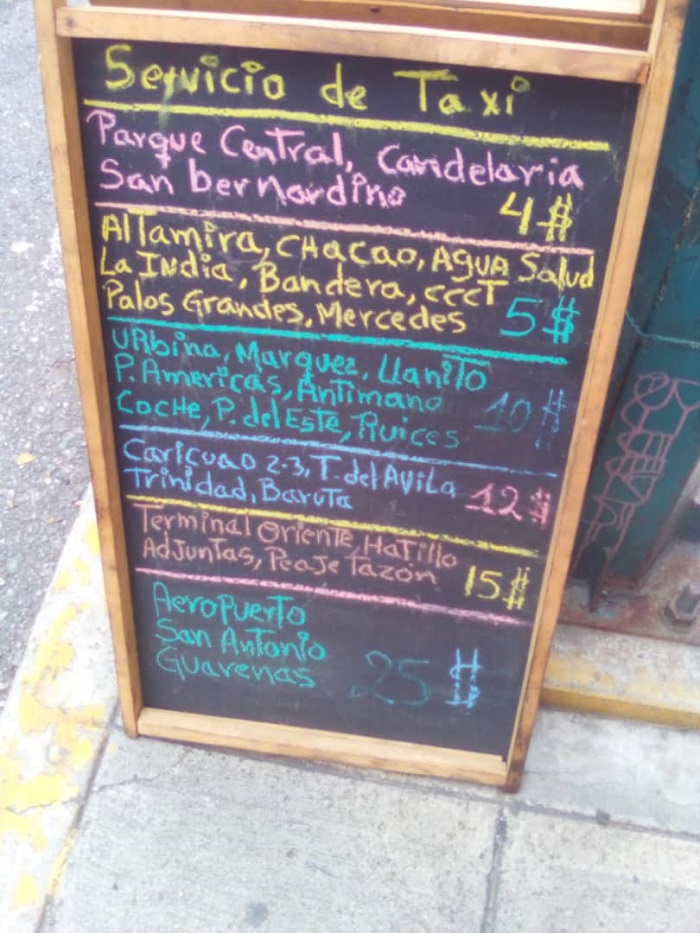 Servicio de Taxi
Parque Central, Candelaria
San bernardino 4$
AlTamira, CHacao, AGUA Salud
La INdia, Bandera, CCCT
Palos Grandes, Mercedes 5$
URbina, Marquez, LlaniTo
P. Americas, Antimano 10$
CocHe, P. del EsTe, Ruices
Caricuao 2-3, T. del AviLa
Trinidad, BaruTa 12$
Terminal Oriente, HaTillo
AdJuntas, Peaje Tazón 15$
AeroPuerto
San AnTonio
Guarenas 25$